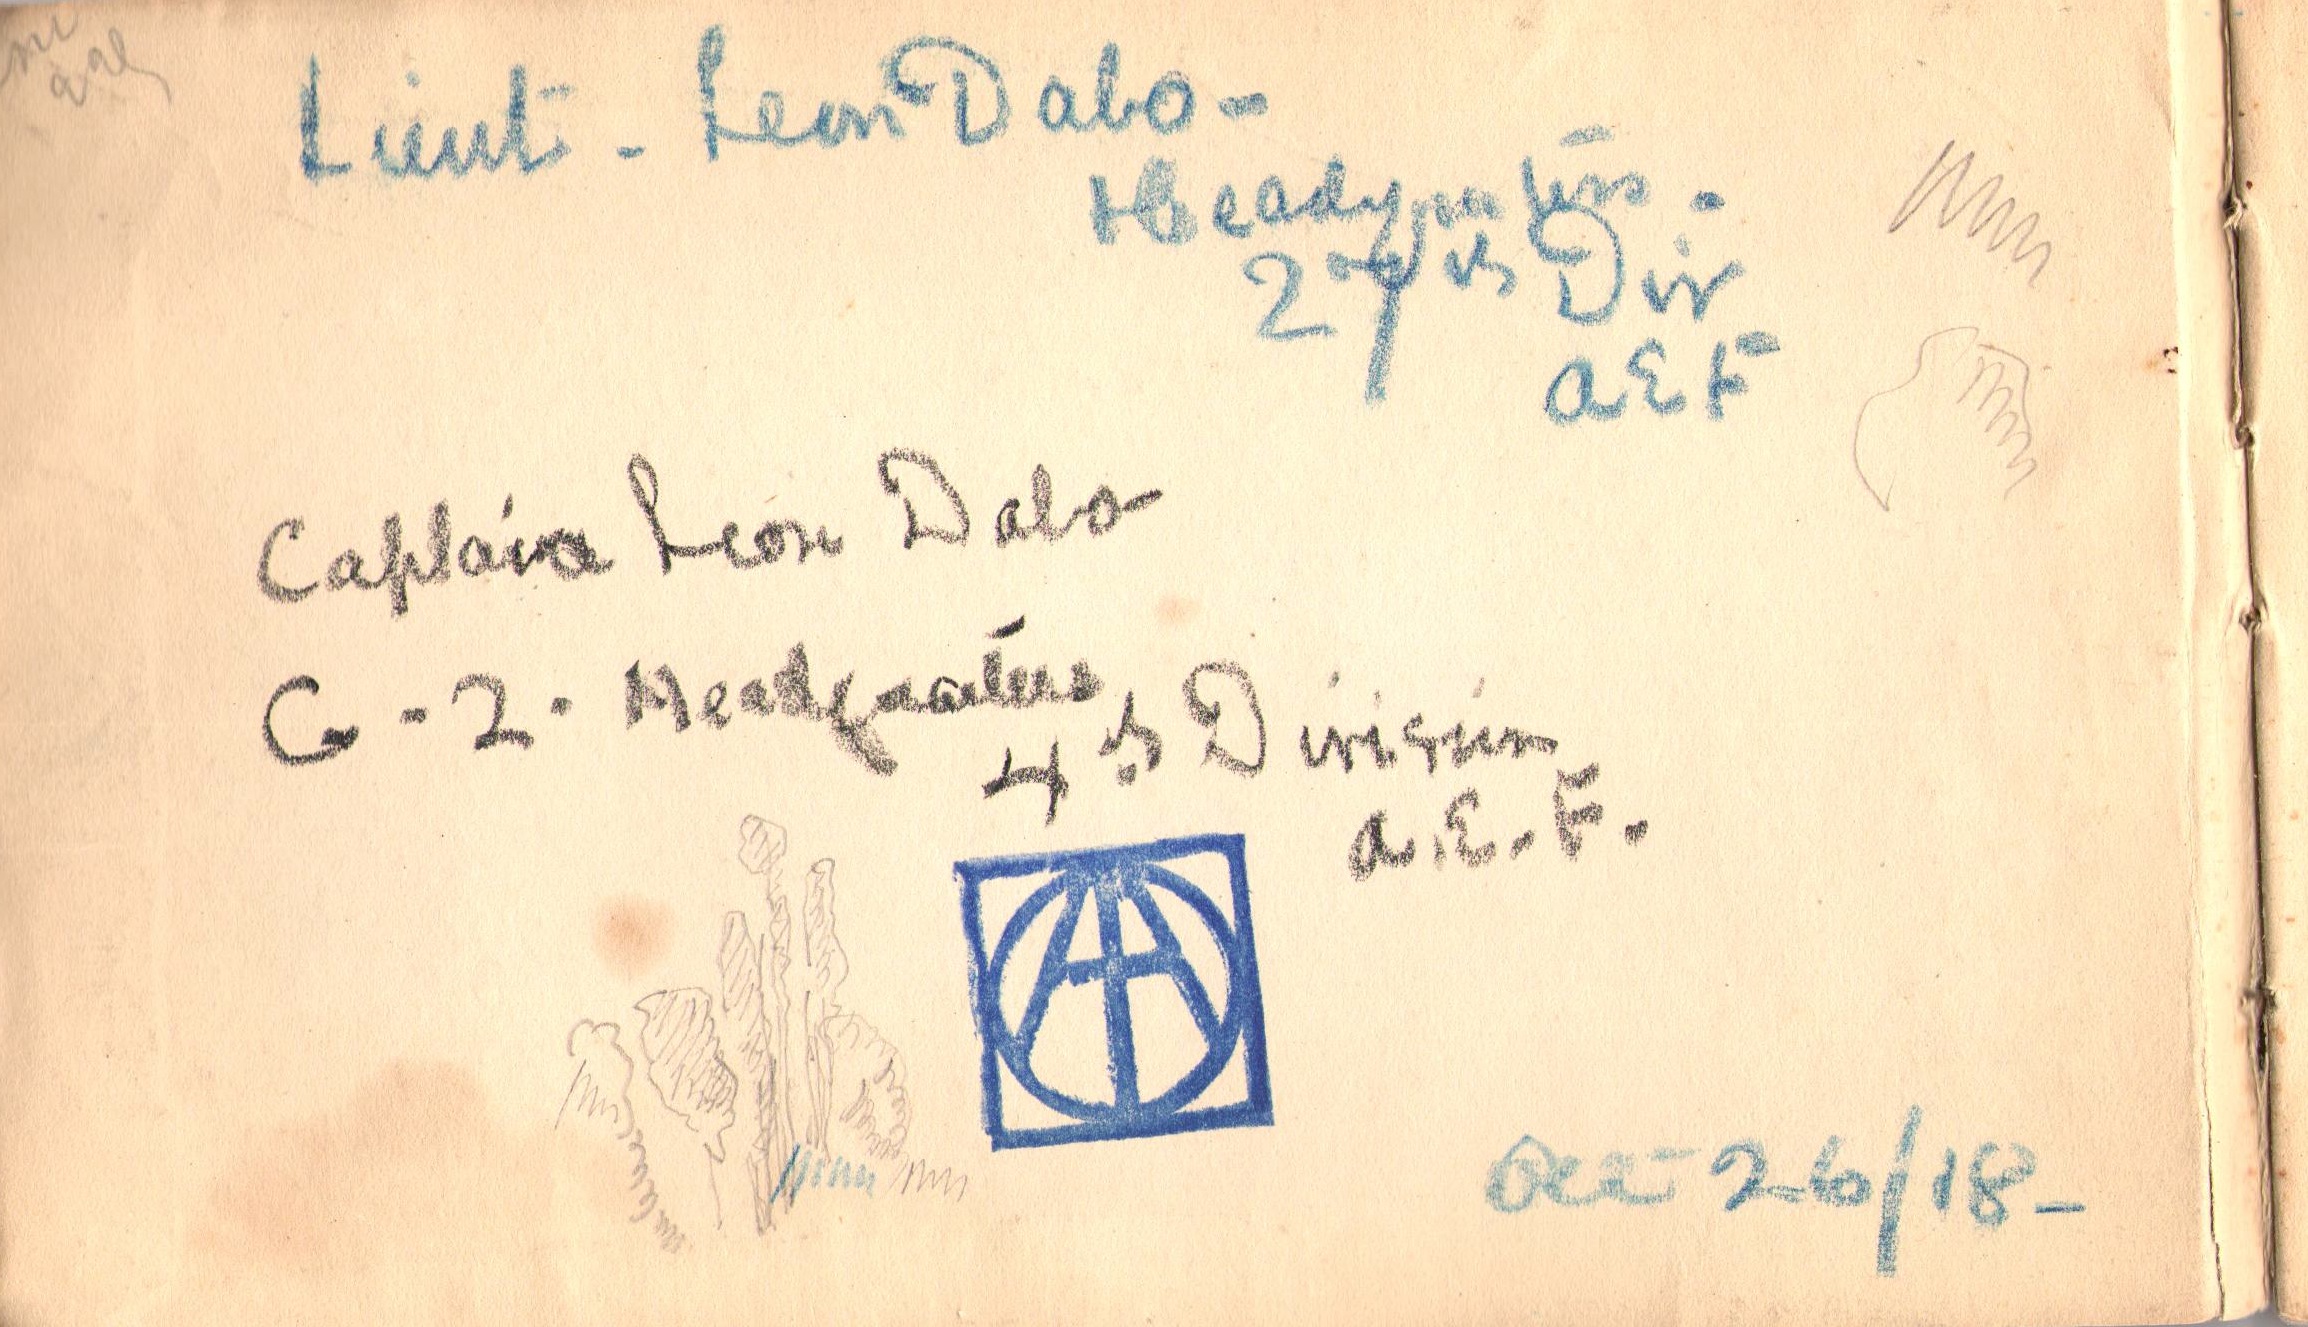 Lieut - Leon Dabo -
Headquaters.
27th Div
A E F
Captain Leon Dabo
G - 2 . Headquaters
4th Division
A. E. F.
Oct 26/18 -